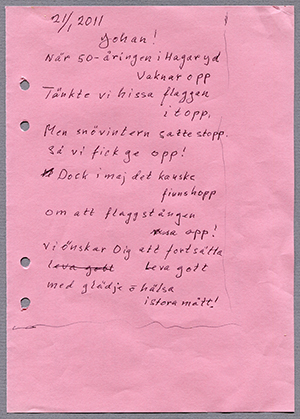 21/1, 2011
Johan!
När 50-åringen i Hagaryd
Vaknar opp
Tänkte vi hissa flaggan
i topp,
Men snövintern satte stopp.
Så vi fick ge opp!
Doch i maj det kanske
finns hopp
om att flaggstången
resa opp!
Vi önskar Dig att fortsätta
leva gott Leva gott
med glädje o hälsa
i stora mått!